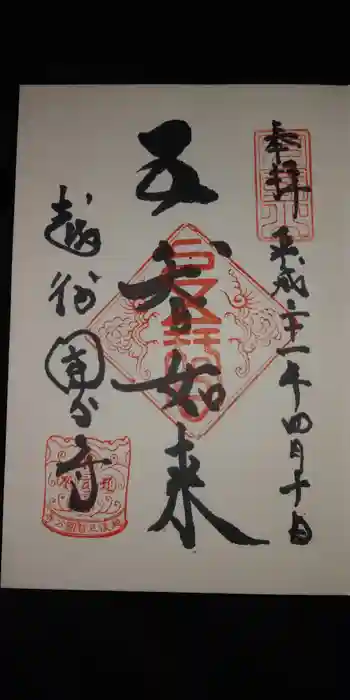 奉拝 平成三十一年四月十日
五智如来
越後國分寺